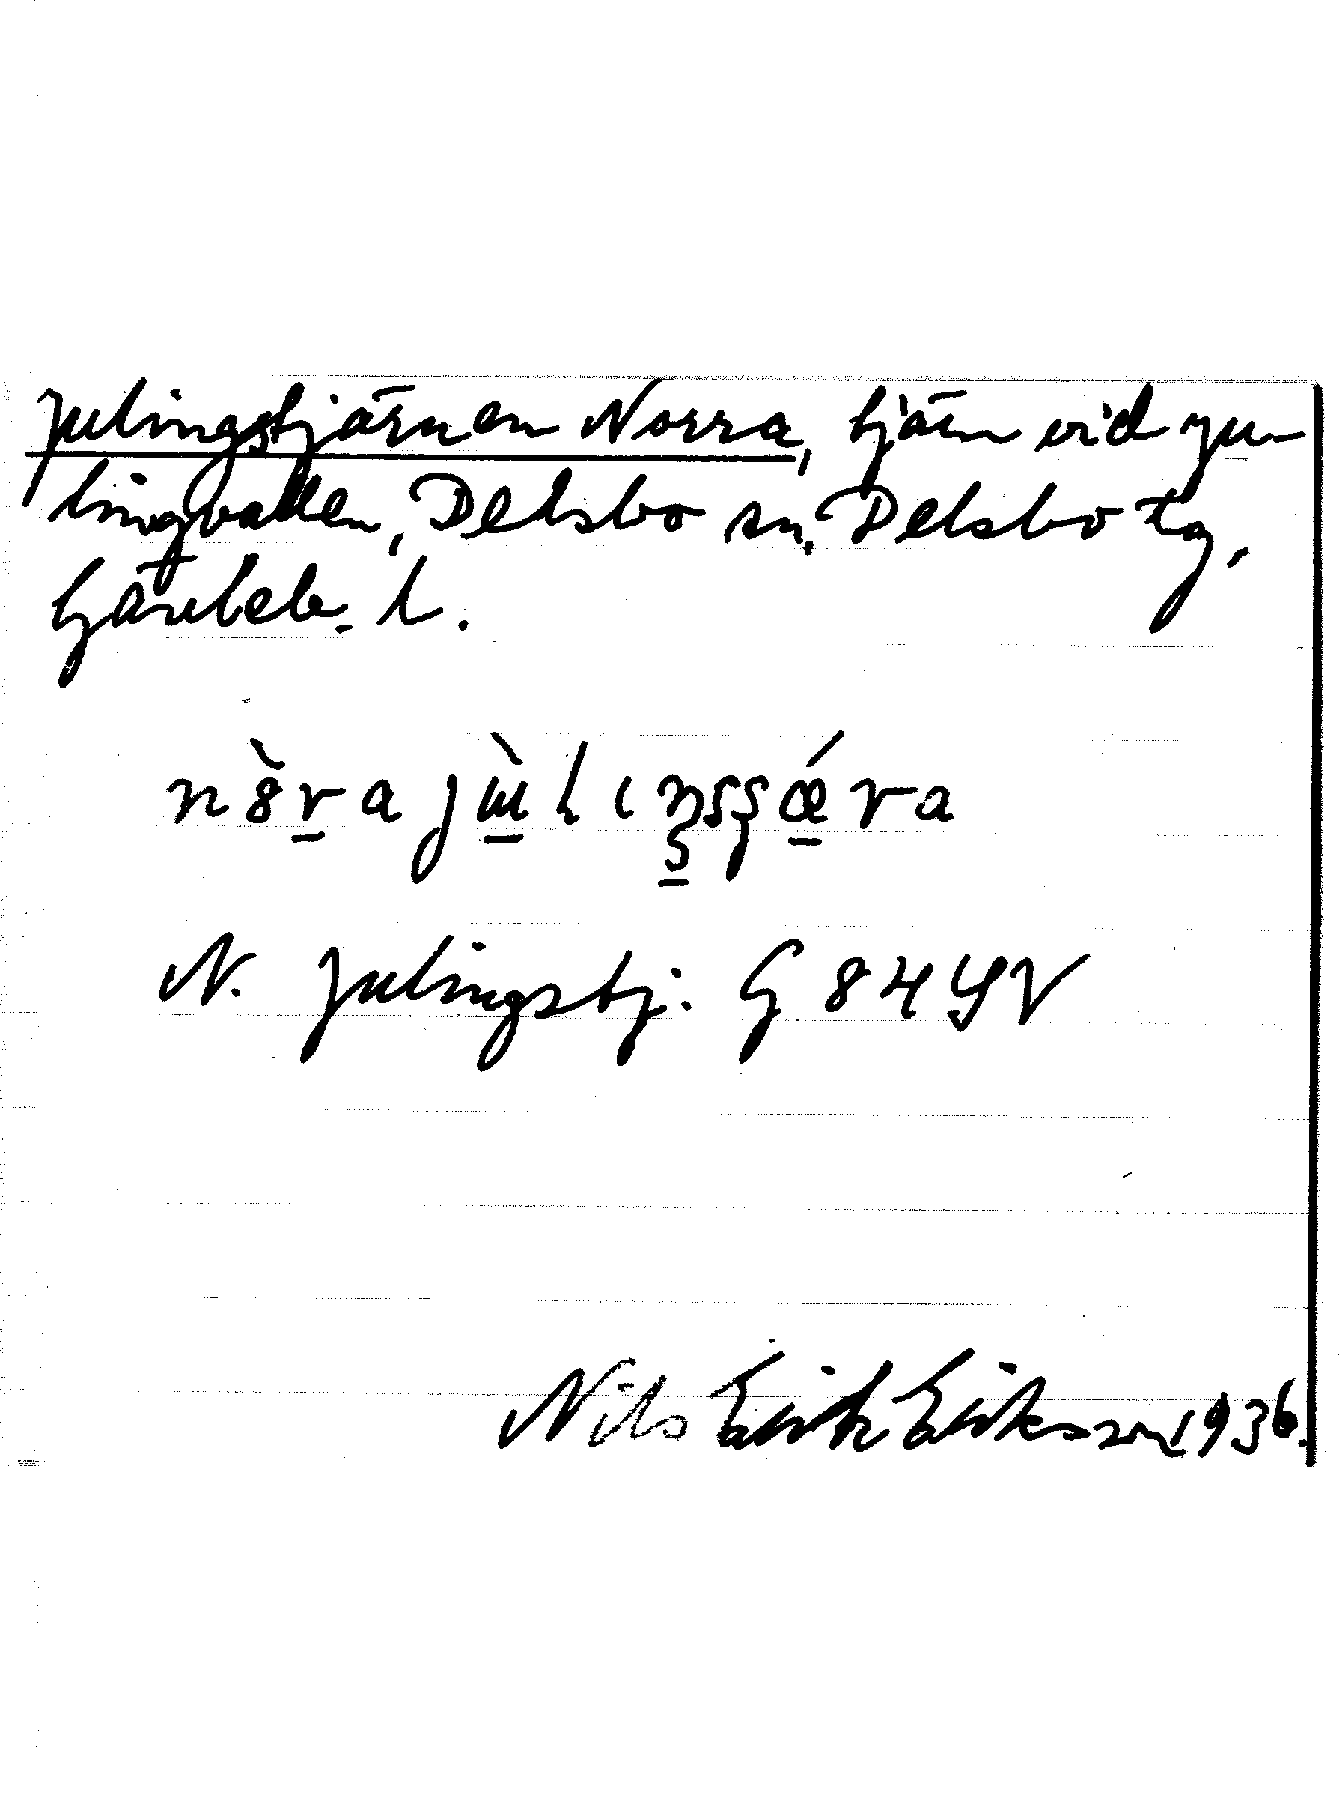 Julingstjärnen Norra, tjärn vid Ju-
lingvallen, Delsbo sn, Delsbo tg,
Gävleb. l.
N. Julingstj. G 84 SV
Nils Erik Eriksson 1936.